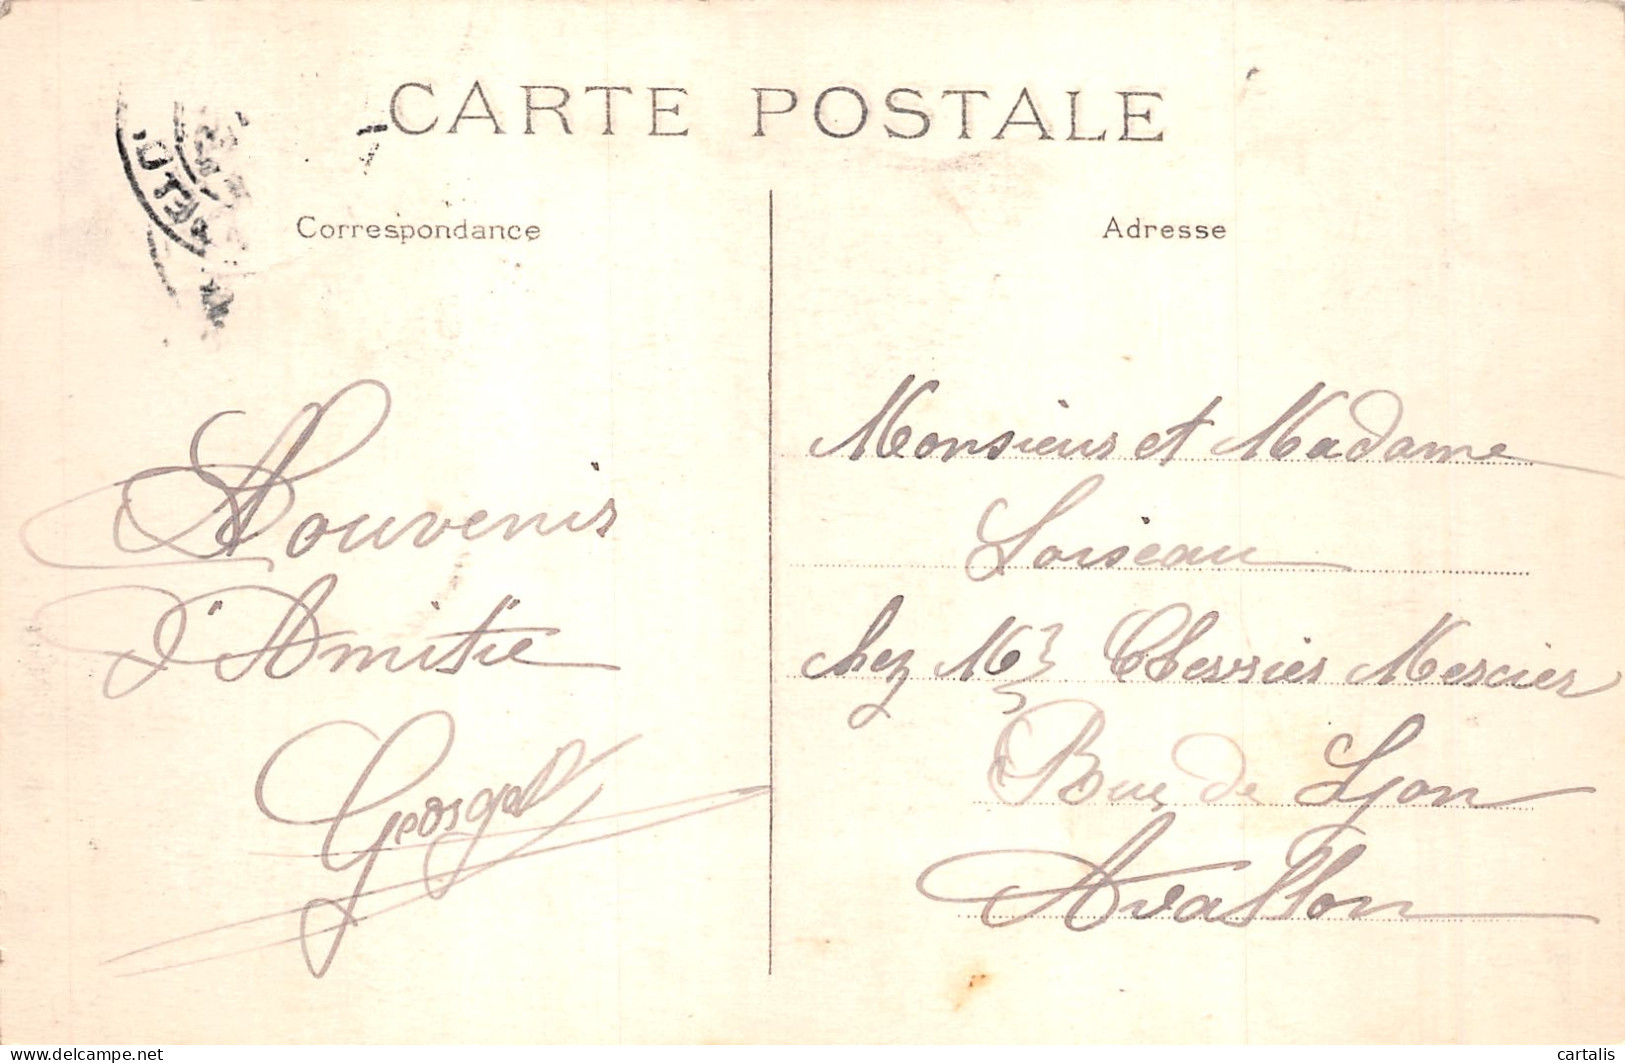 CARTE POSTALE
Correspondance
Adresse
Souvenir
d'Amitié
Georget
Monsieur et Madame
Loiseau
chez Mr Chevrier Mercier
Rue de Lyon
Avallon
www.delcampe.net
cartalis